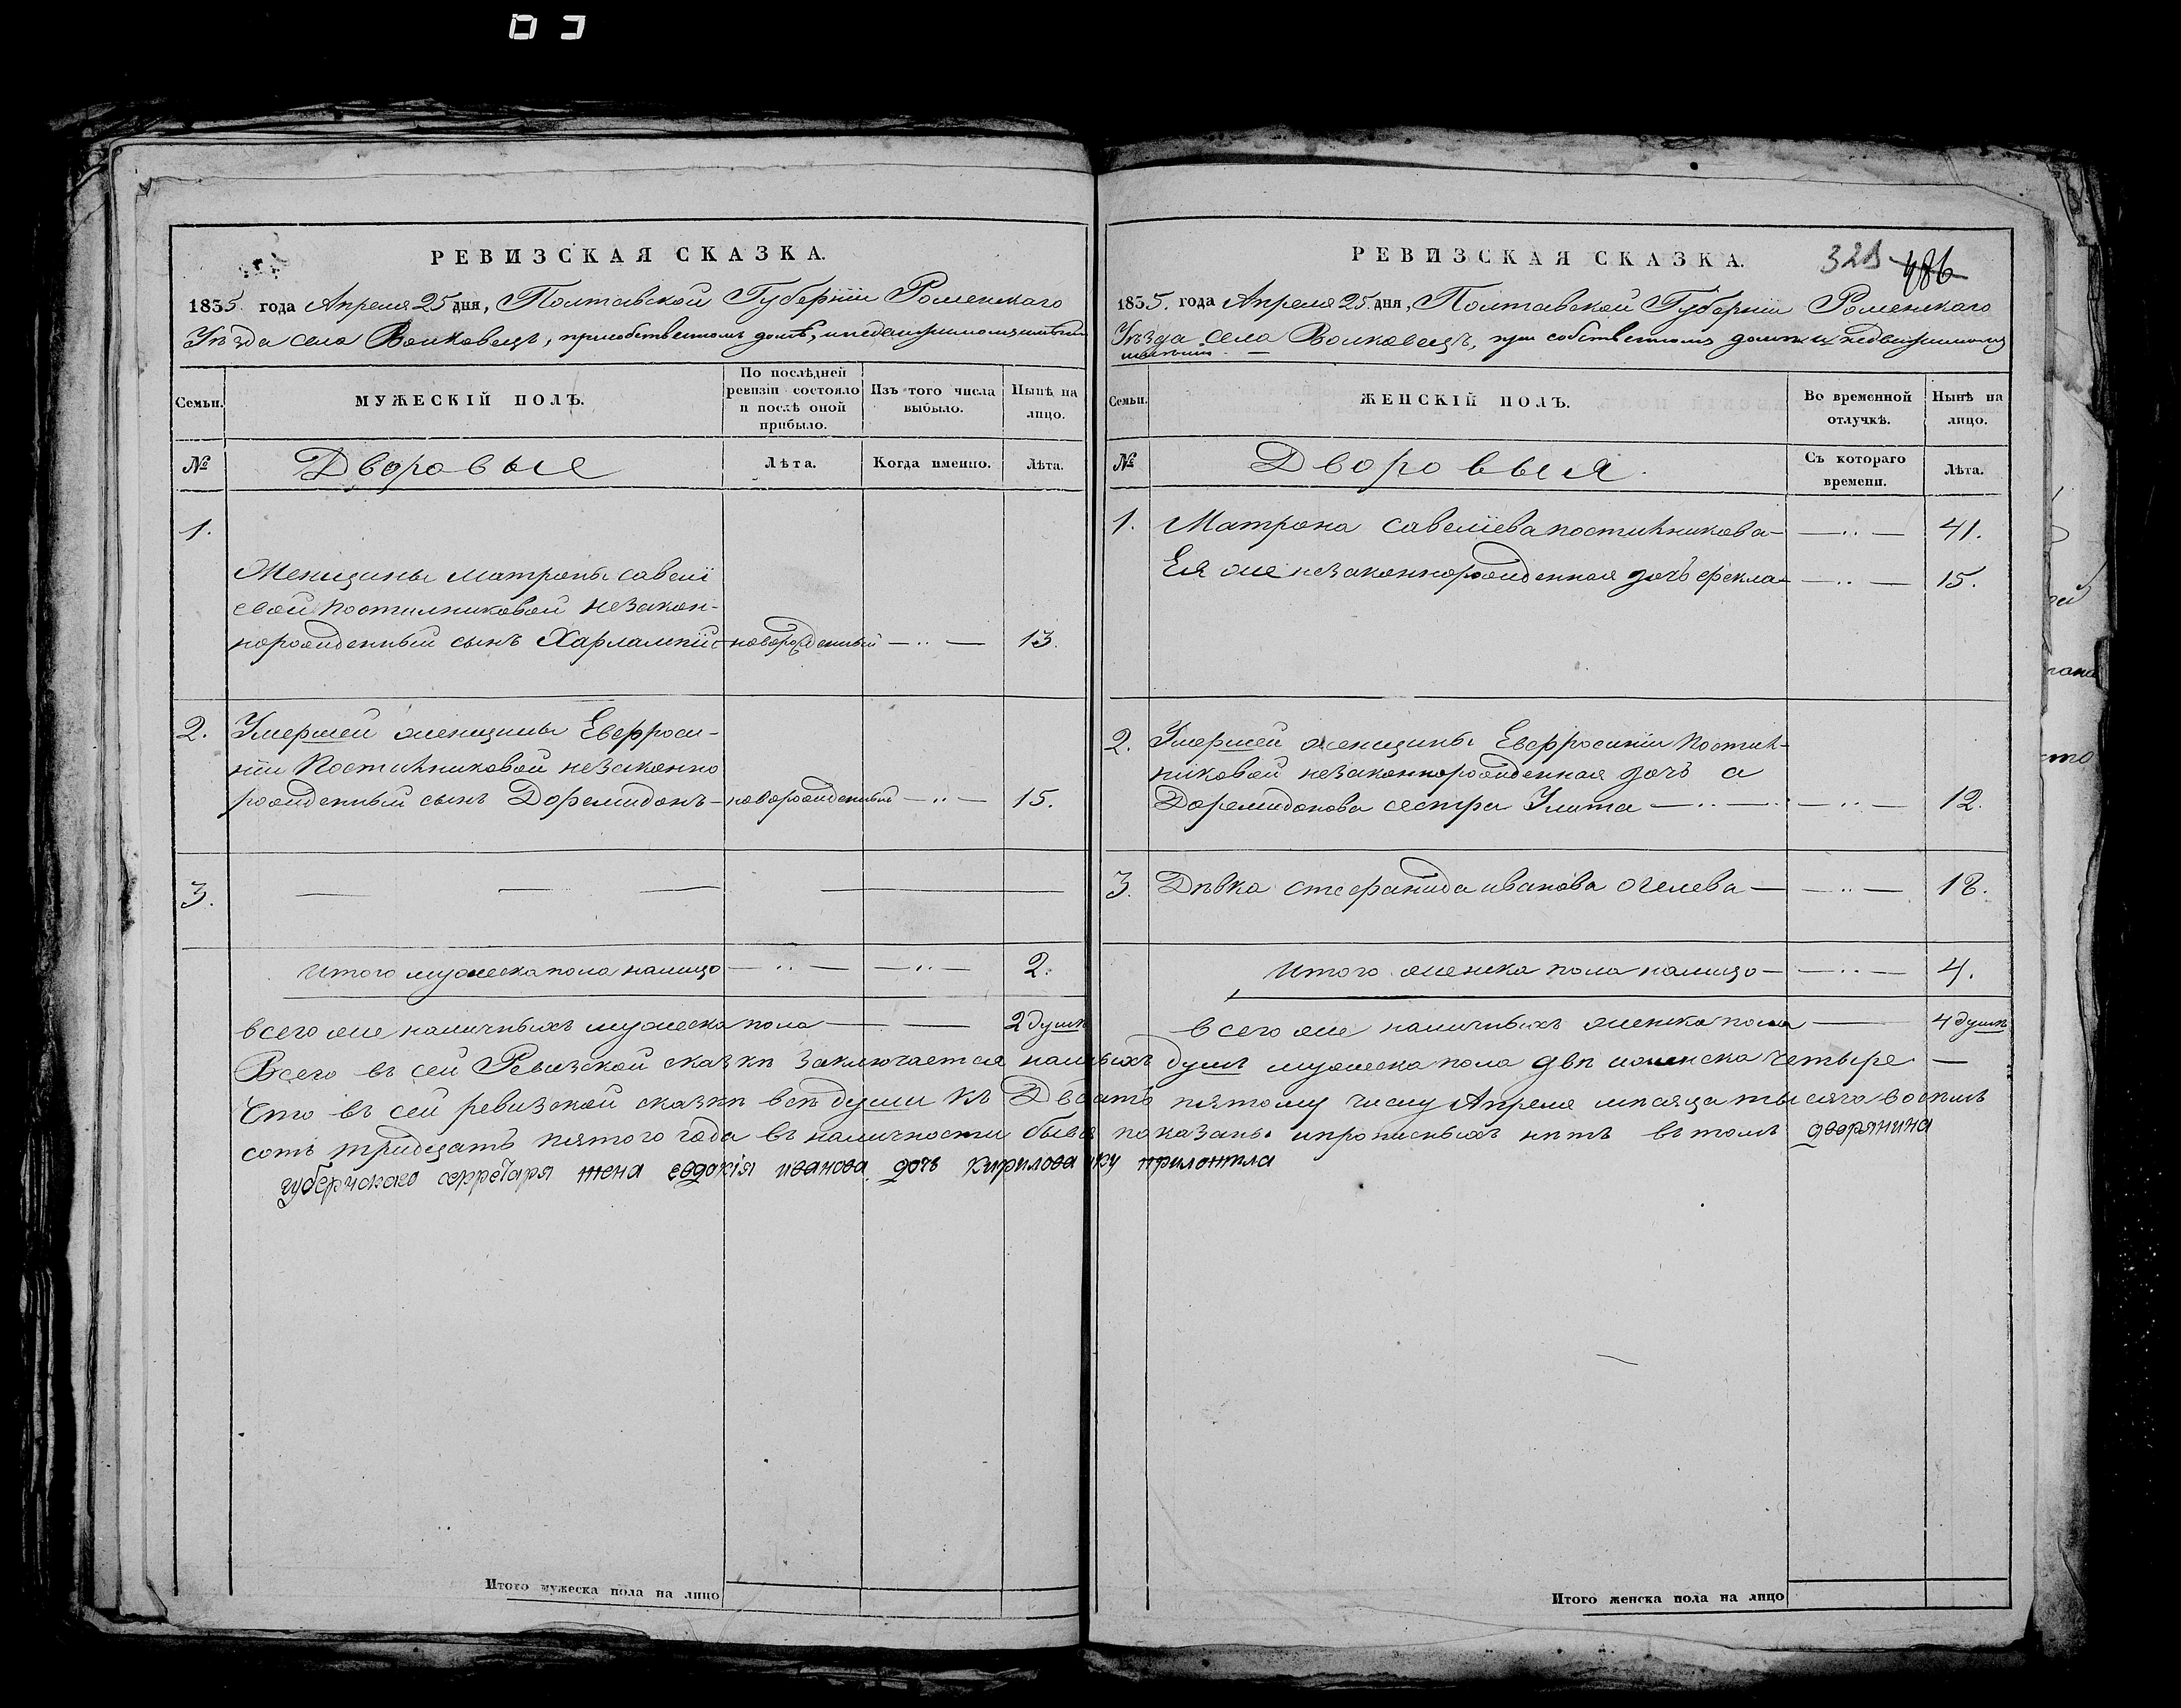 РЕВИЗСКАЯ СКАЗКА.
1835. года Апреля 25 дня, Полтавской Губернїи Роменскаго
Уѣзда села Волковецъ, присобственномъ домѣ, инедвижимомъимѣнии
Семьи.
МУЖЕСКІЙ ПОЛЪ.
По послѣдней ревизіи состояло и послѣ оной прибыло.
Изъ того числа выбыло.
Нынѣ на лицо.
№ Дворовые Лѣта. Когда именно. Лѣта.
1.
Женщины матроны савелї
евой Постилниковой незакон-
норожденный сынъ Харлампїй новорожденный 13.
2. Умершей женщины Евфроси-
нїи Постилниковой незаконно
рожденный сынъ Доремидонъ новорожденный 15.
3.
Итого мужеска пола налицо 2.
всего же наличныхъ мужеска пола 2 душъ
РЕВИЗСКАЯ СКАЗКА.
486
1835. года Апреля 25. дня, Полтавской Губернїи Роменскаго
Уѣзда села Волковецъ, при собственномъ домѣ и недвижимомъ
имѣнии
Семьи.
ЖЕНСКІЙ ПОЛЪ.
Во временной отлучкѣ.
Нынѣ на лицо.
№ Дворовыя. Съ котораго времени. Лѣта.
1. Матрона савелїева постилникова 41.
Ея же незаконнорожденная дочь фекла 15.
2. Умершей женщины Евфросинїи Постил-
никовой незаконнорожденная дочъ а
Доремидонова сестра Улита 12.
3. Дѣвка стефанида иванова 18.
Итого женска пола налицо 4.
всего же наличныхъ женска пола 4 душъ
Всего въ сей Ревизской сказкѣ заключается душъ мужеска пола двѣ иженска четыре
Что въ сей ревизской сказкѣ всѣ души къ пятому числу Апреля мѣсяца тысяча восѣмъ
сотъ тридцать пятого года въ наличности бывъ показаны ипрописныхъ нѣтъ въ томъ дворянина
губернскаго секретаря жена евдокїя иванова дочь Кирилова руку приложила
Итого мужеска пола на лицо
Итого женска пола на лицо